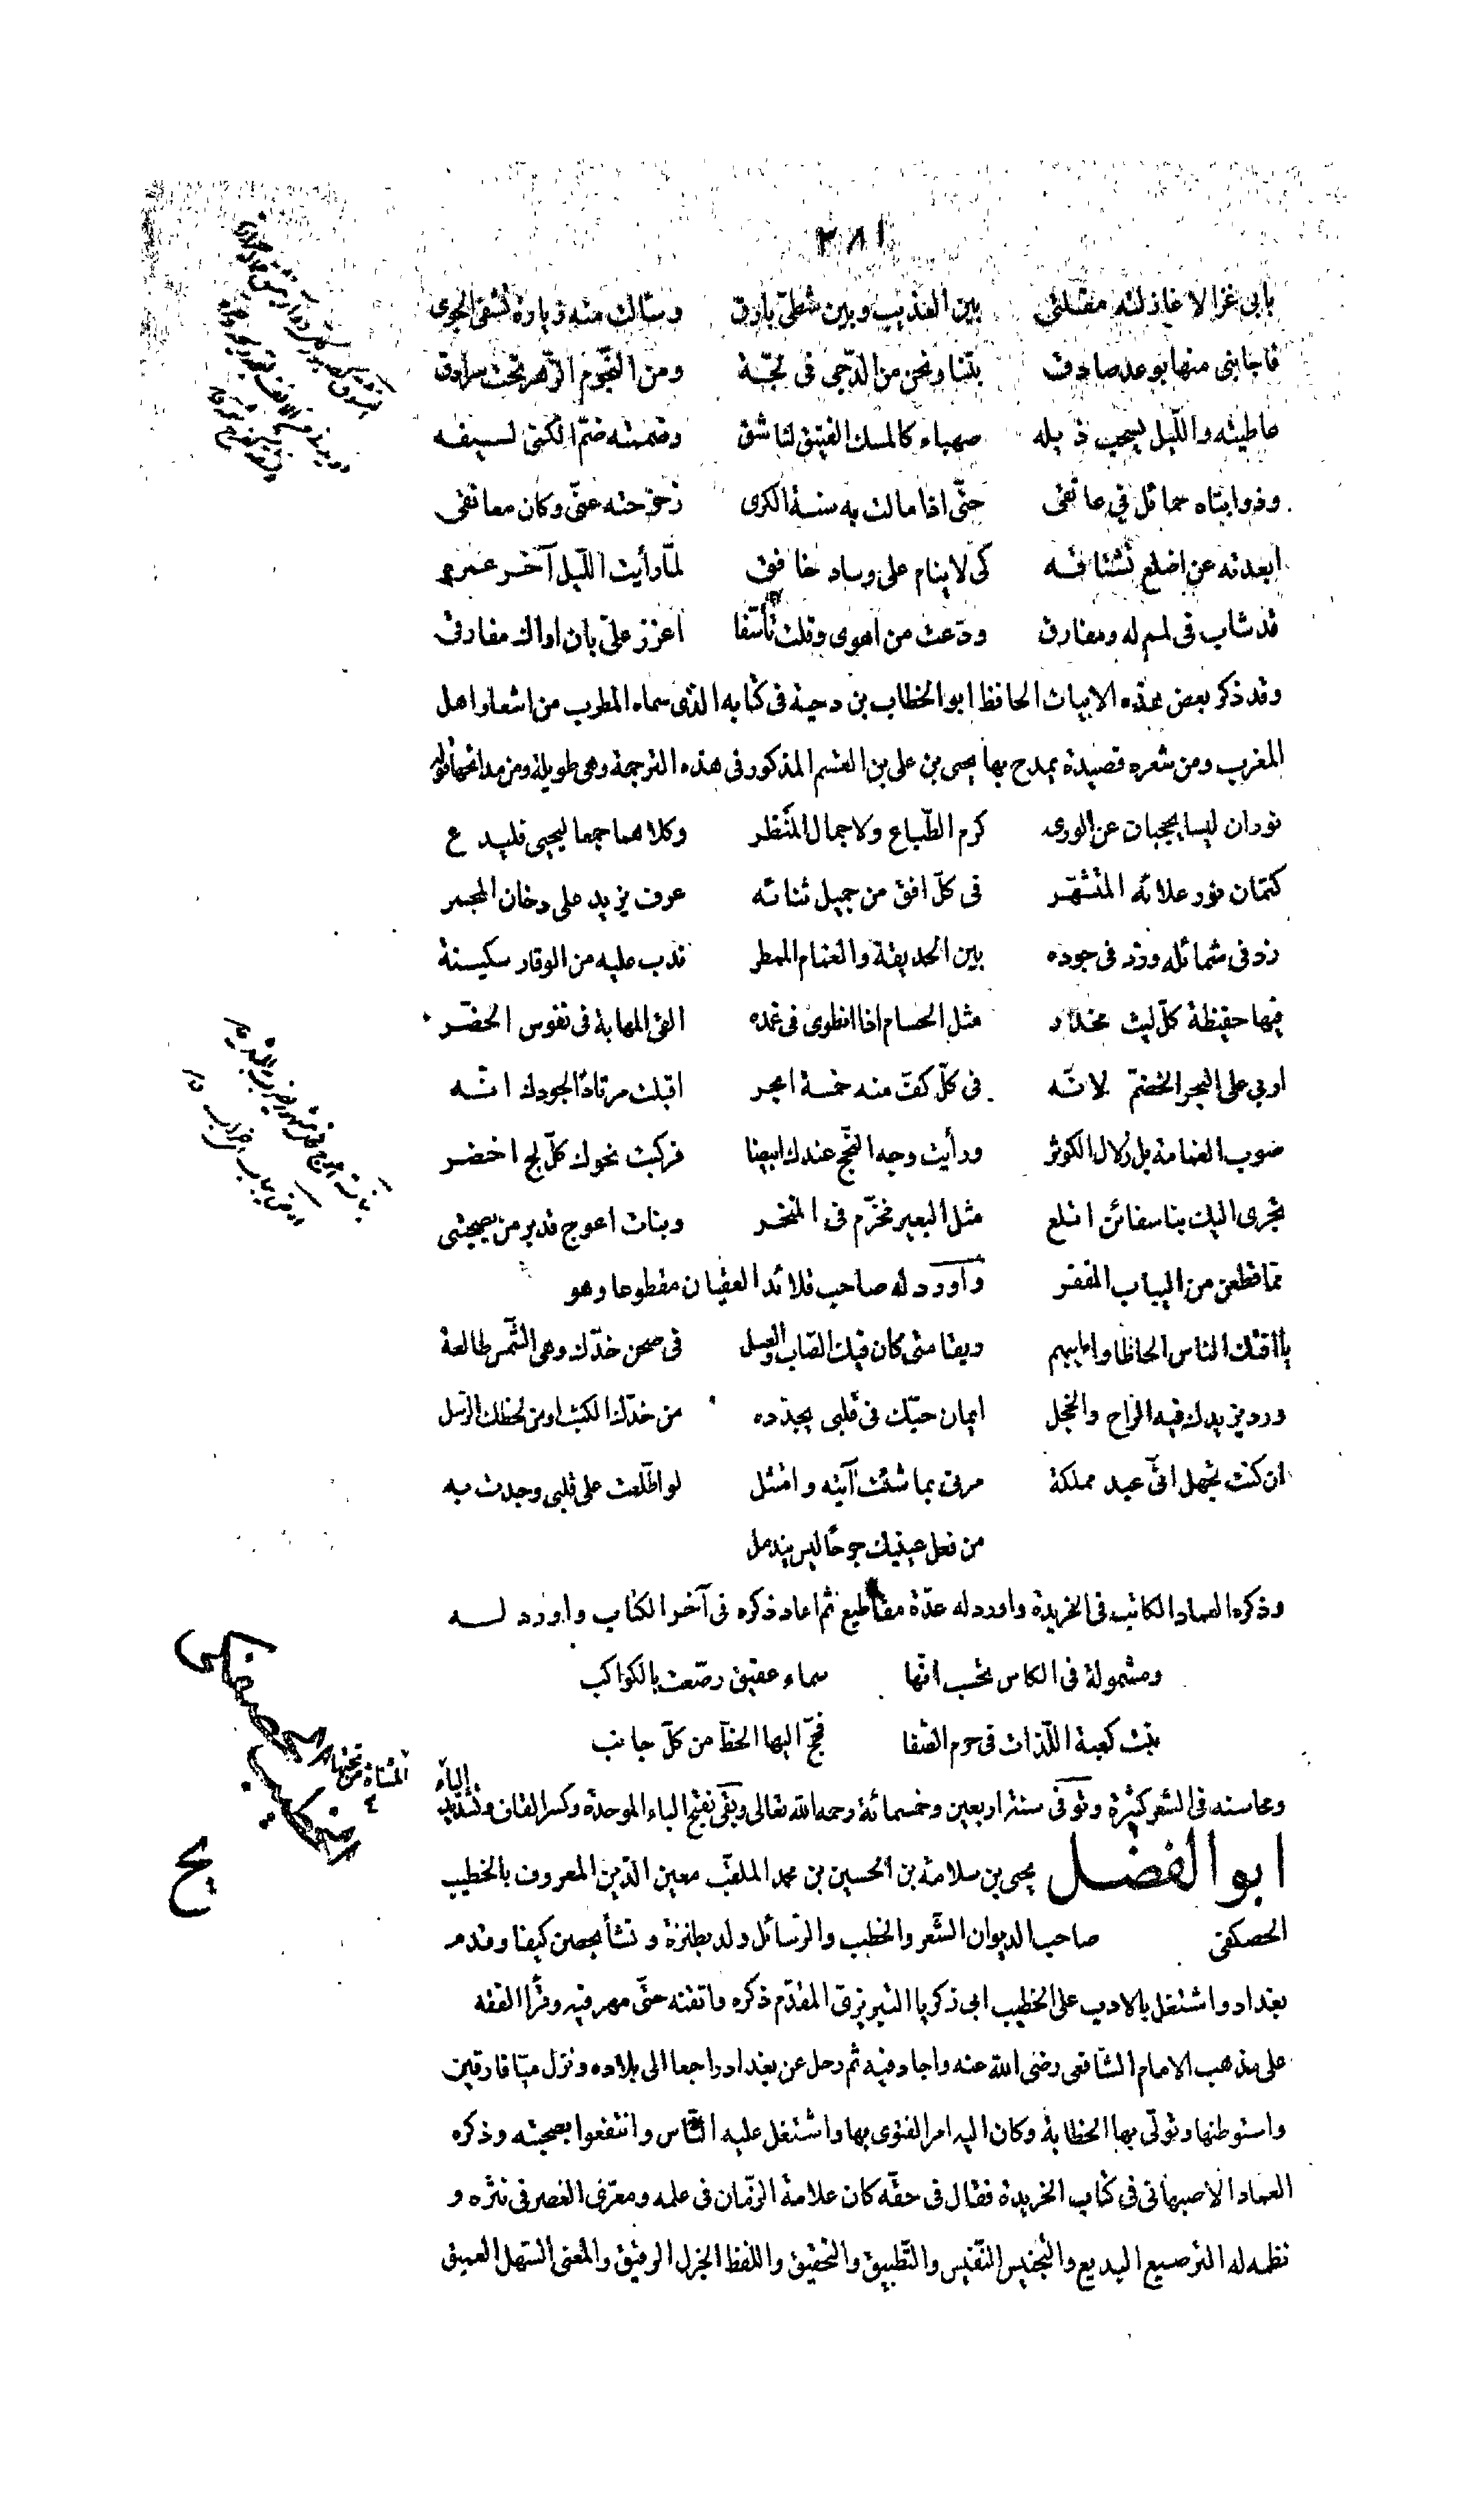 ٢٨١
بابى غزالا غازلته مقلتى بين العذيب وبين شطى بارق وسالت منه زيارة تشفى الجوى
فاجابنى منها بوعد صادق بتنا ونحن من الدّجى فى لجّة ومن النّجوم الزّهر تحت سرادق
عاطيته واللّيل يسحب ذيله صهباء كالمسك الفتيق لناشق وضممته ضمّ الكمى لسيفه
وذوابتاه حمائل في عاتقى حتّى اذا مالت به سنة الكرى زحزحته عنّى وكان معانقى
ابعدته عن اضلع تشتاقه كى لا ينام على وساد خافق لمّا رأيت اللّيل آخر عمره
قد شاب فى لمم له ومفارق ودّعت من اهوى وقلت تأسّفا اعزز علىّ بان اراك مفارقى
وقد ذكر بعض هذه الابيات الحافظ ابو الخطاب بن دحية فى كتابه الذى سماه المطرب من اشعار اهل
المغرب ومن شعره قصيدة يمدح بها يحيى بن على بن القسم المذكور فى هذه الترجمة وهى طويلة ومن مدائحها قوله
نوران ليسا يحجبان عن الورى كرم الطّباع ولا جمال المنظر وكلاهما جمعا ليحيى فليدع
كتمان نور علائه المتشهّر فى كلّ افق من جميل ثنائه عرف يزيد على دخان المجمر
زد فى شمائله وزد فى جوده بين الحديقة والغمام الممطر ندب عليه من الوقار سكينة
فيها حفيظة كلّ ليث مخدر مثل الحسام اذا انطوى فى غمده القى المهابة فى نفوس الحضّر
اربى على البحر الخضمّ لانّه فى كلّ كفّ منه خمسة ابحر اقبلت مرتادًا لجودك انّه
صوب الغمامة بل زلال الكوثر ورأيت وجه النّجح عندك ابيضا فركبت نحوك كلّ لج اخضر
تجرى اليك بنا سفائن اتلع مثل البعير مخزّم فى المنخر وبنات اعوج قد برمن بصحبتى
ممّا قطعن من اليباب المقفر واورد له صاحب قلائد العقيان مقطوعا وهو
يا افتك الناس الحاظا واطيبهم ريقا متى كان فيك الصّاب والعسل فى صحن خدّك وهى الشّمس طالعة
ورد يزيدك فيه الراح والخجل ايمان حبّك فى قلبى يجدّده من خدّك الكتب اومن لحظك الرّسل
ان كنت تجهل انّى عبد مملكة مرنى بما شئت آتيه وامتثل لو اطّلعت على قلبى وجدت به
من فعل عينيك جرحًا ليس يندمل
وذكره العماد الكاتب فى الخريدة واورد له عدّة مقاطيع ثم اعاد ذكره فى آخر الكتاب واورد لــه
ومشمولة فى الكاس تحسب انّها سماء عقيق رصّعت بالكواكب
بنت كعبة اللّذات فى حرم الصّفا فحجّ اليها الحظّ من كلّ جانب
ومحاسنه فى الشعر كثيرة وتوفى سنة اربعين وخمسمائة رحمه الله تعالى وبقى بفتح الباء الموحدة وكسر القاف وتشديد الياء
المثناة من تحتها
ابو الفضــل يحيى بن سلامة بن الحسين بن محمد الملقب معين الدّين المعروف بالخطيب
الخطيب الحصفكى
الحصكفى صاحب الديوان الشّعر والخطب والرّسائل ولد بطنزة ونشأ بحصن كيفا وقدم
بغداد واشتغل بالادب على الخطيب ابى زكريا التبريزى المقدّم ذكره واتقنه حتّى مهر فيه وقرأ الفقه
على مذهب الامام الشّافعى رضى الله عنه واجاد فيه ثم رحل عن بغداد راجعا الى بلاده ونزل ميّافارقين
واستوطنها وتولّى بها الخطابة وكان اليه امر الفتوى بها واشتغل عليه النّاس وانتفعوا بصحبته وذكره
العماد الاصبهانى فى كتاب الخريدة فقال فى حقّه كان علامة الزّمان فى علمه ومعرّى العصر فى نثره و
نظمه له الترصيع البديع والتّجنيس النّفيس والتّطبيق والتّحقيق واللفظ الجزل الرقيق والمعنى السّهل العميق